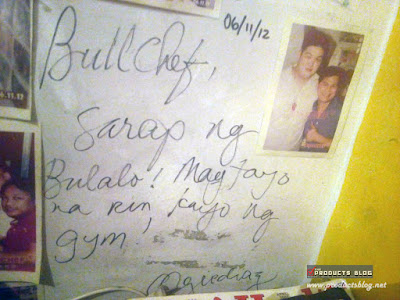 06/11/12
Bull Chef,
Sarap ng
Bulalo! Magtayo
na rin kayo ng
gym!
.11.12
PRODUCTS BLOG
www.productsblog.net